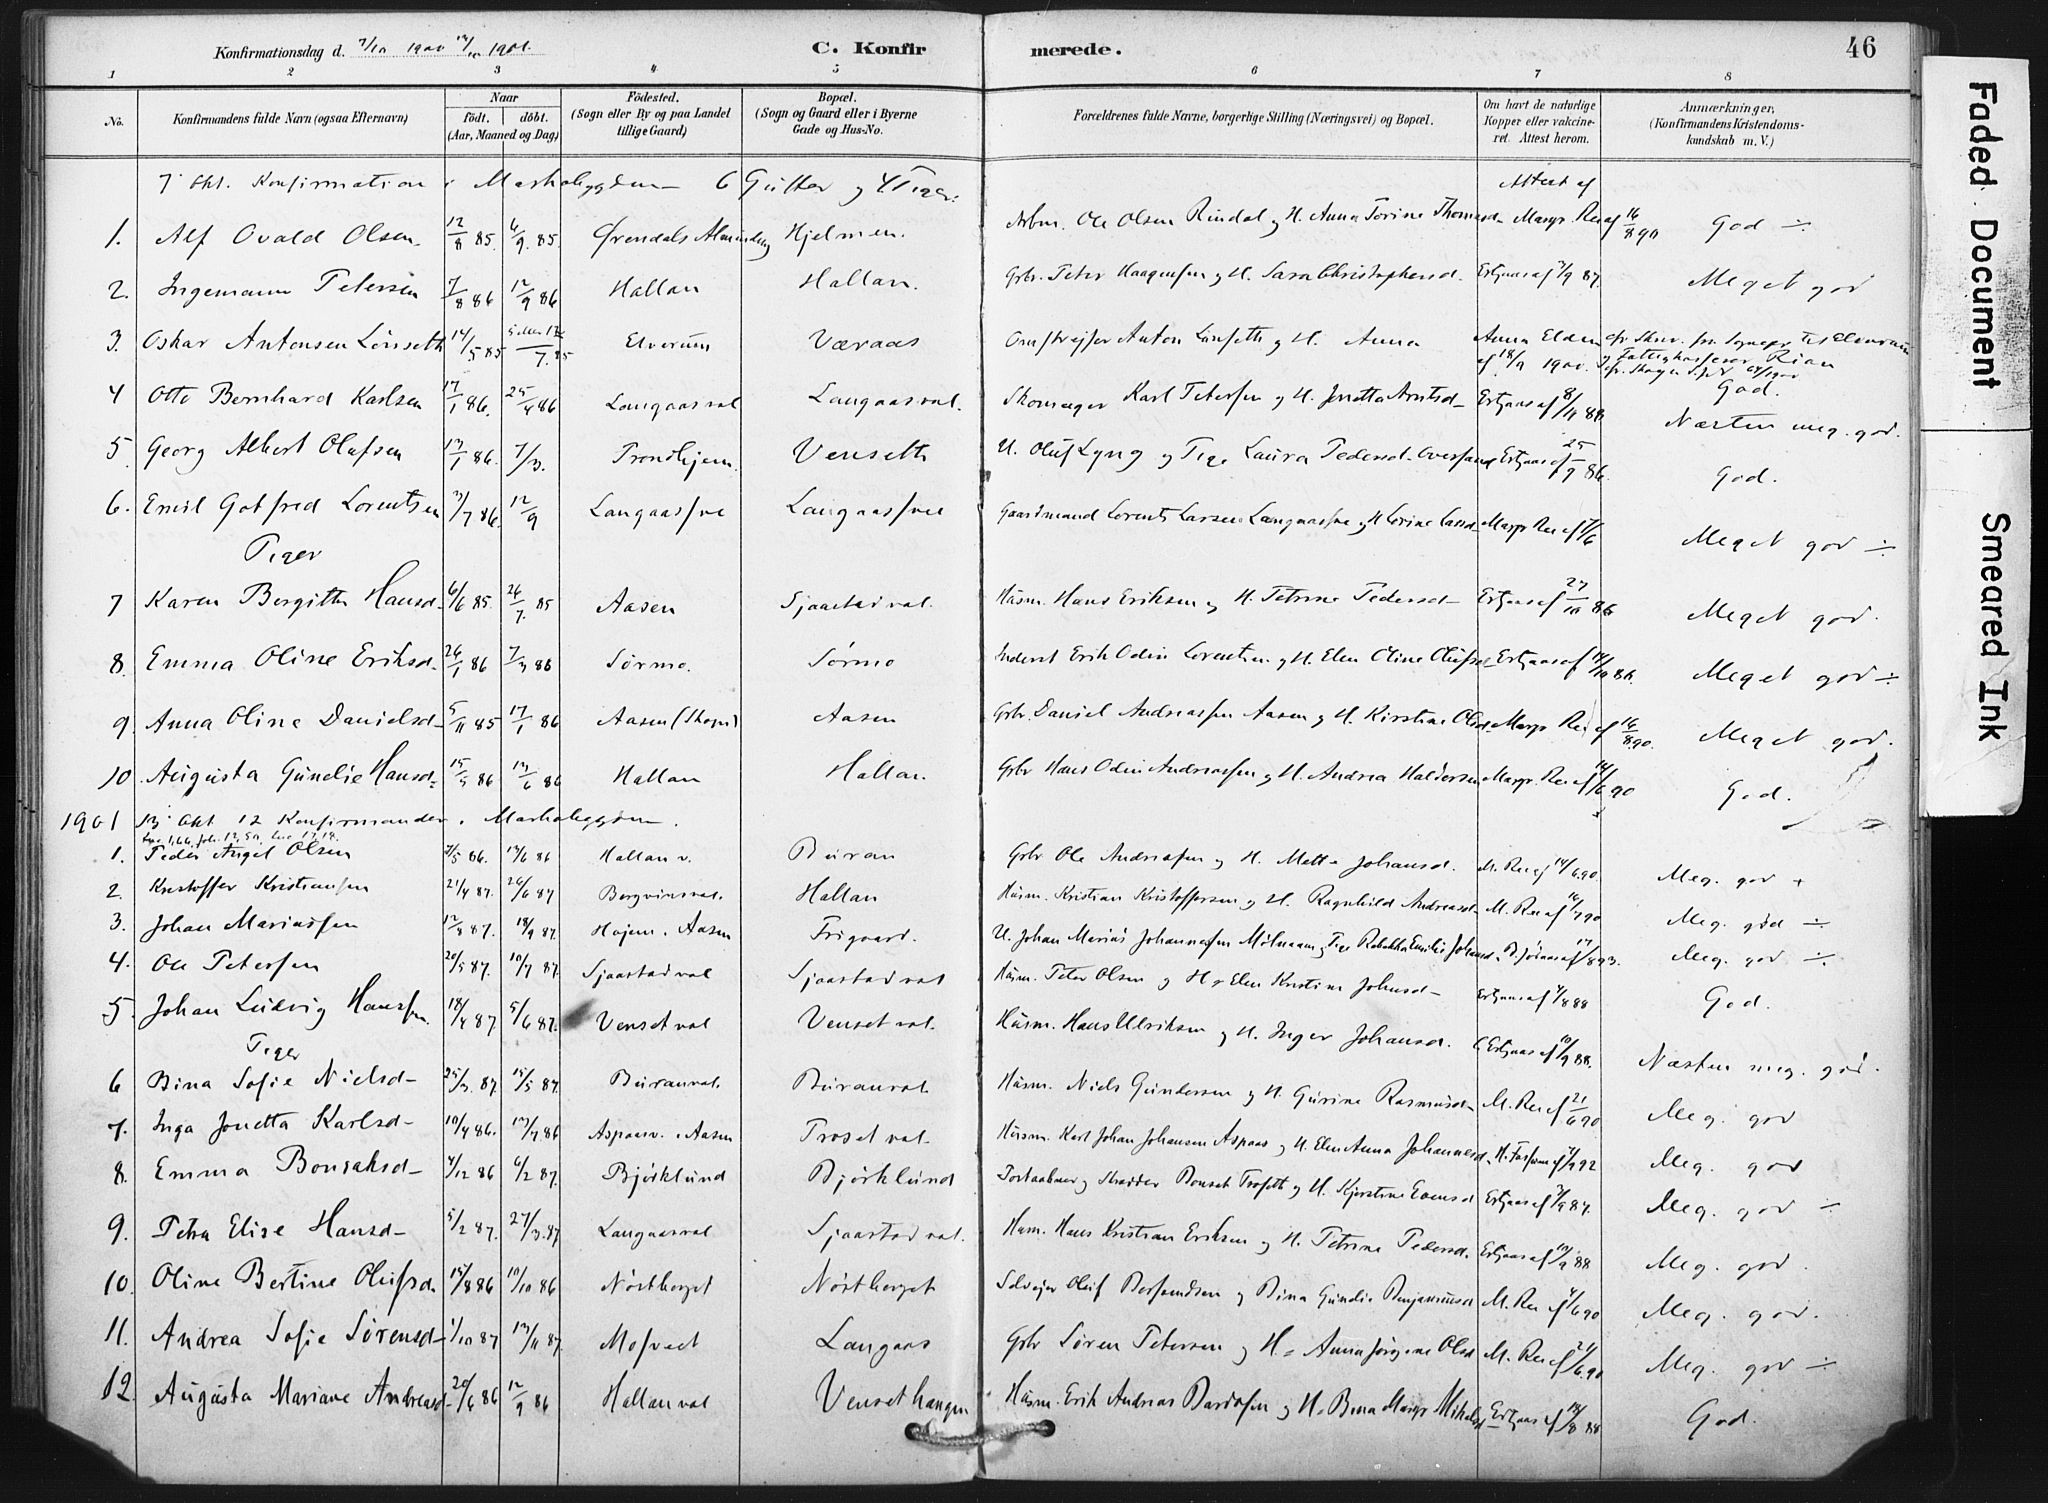 Konfirmationsdag d. 7/10 1900 13/10 1901.
C. Konfirmerede.
46
1 2 3 4 5 6 7 8
No.
Konfirmandens fulde Navn (ogsaa Efternavn)
Naar
født. døbt.
(Aar, Maaned og Dag)
Fødested.
(Sogn eller By og paa Landet
tillige Gaard)
Bopæl.
(Sogn og Gaard eller i Byerne
Gade og Hus-No.
Forældrenes fulde Navne, borgerlige Stilling (Næringsvei) og Bopæl.
Om havt de naturlige
Kopper eller vakcine-
ret. Attest herom.
Anmærkninger,
(Konfirmandens Kristendoms-
kundskab m. V.)
7 Okt. Konfirmation i Markabygden 6 Gutter og 4 Piger. Attest af
1. Alf Ovald Olsen. 12/8 85. 6/9. 85. Ørendals Almindng Hjelmen. Arbm. Ole Olsen Rindal og H. Anna Torine Thomasd. Margr. Rei af 16/8 90 God ÷
2. Ingemann Petersen 7/8 86 12/9 86 Hallan Hallan. Grbr. Peter Haagensen og H. Sara Christophersd. Ertjaas af 7/9 87. Meget god
3. Oskar Antonsen Lönseth 14/5 85 7. 85 Elverum Væraas Omstreifer Anton Lönseth og H. Anna Anna Elden af 18/9 1900.
4 Otto Bernhard Karlsen 17/1 86. 25/4 86 Langaasval Langaasval. Skomager Karl Petersen og H. Jonetta Arntsd. Ertjaas af 8/9 88 God. Næsten meg. god.
5. Georg Albert Olafsen 13/1 86. 7/3. Trondhjem. Venseth U. Oluf Lyng og Pige Laura Pedersd. Oversand Ertjaas af 25/9 86. God.
6. Emil Gotfred Lorentsen 3/7 86. 12/9 Langaassve Langaassve Gaardmand Lorents Larsen Langaassve og H. Lorine Larsd. Margr Rei af 7/6 Meget god ÷
Piger
7 Karen Bergitte Hansd. 6/6 85. 26/7. 85 Aasen Sjaastadval. Husm. Hans Eriksen og H. Petrine Pedersd. Ertjaas af 27/10 86 Meget god.
8. Emma Oline Eriksd. 26/1 86 7/3 86 Sørmo. Sørmo Inderst Erik Odin Lorentsen og H. Elen Oline Olufsd. Ertjaas af 14/10 86. Meget god ÷
9. Anna Oline Danielsd. 5/11 85 17/1 86 Aasen (Skogn) Aasen Grbr. Daniel Andreassen Aasen og H. Kirstine Olsd. Margr Rei af 16/8 90. Meget god.
10. Augusta Gunelie Hansd. 15/5 86 13/6 86 Hallan Hallan. Grbr Hans Odin Andreassen og H. Andrea Haldorsen Margr. Rei af 14/6 90 God.
1901 13 Okt 12 Konfirmander i Markabygden.
1. Peder Angel Olsen 7/5 86. 13/6 86 Hallan v. Buran Grbr Ole Andreasen og H. Mette Johansd. M. Rei af 14/6 90. Meg. god +
2. Kristoffer Kristiansen 21/4 87. 26/6 87 Bergvinsval. Hallan Husm. Kristian Kristoffersen og H. Ragnhild Andreasd. M. Rei af 16/7 90 Meg. god ÷
3. Johan Mariussen 12/8 87. 18/9 87. Hojem i Aasen Frigaard. U. Johan Marius Johannesen Mölnaam og Pige Rebekka Emilie Johansd. B. Jönaas af 17/8 93. Meg. god ÷.
4. Ole Petersen 20/5 87. 10/7 87. Sjaastadval Sjaastadval Husm. Peter Olsen og H. Elen Kristine Johnsd. Ertjaas af 9/8 88 God.
5. Johan Ludvig Hansen. 18/4 87 5/6 87. Vensetval Vensetval. Husm. Hans Ulriksen og H. Inger Johansd. C. Ertjaas af 10/9 88. Næsten meg. god.
Piger
6 Bina Sofie Nielsd. 25/3. 87. 15/5 87. Buranval. Buranval Husm. Niels Gundersen og H. Gurine Rasmusd. M. Rei af 21/6 90 Meg. god
7. Inga Jonetta Karlsd. 10/4 86. 13/7 86 Aspaasv. i Aasen Trosetval. Husm. Karl Johan Johansen Aspaas og H. Elen Anna Johannesd. Meg. god
8. Emma Bonsaksd. 4/12 86 6/2 87. Bjørklund Bjørklund H. Kjerstine Evensd Ertjaas af 7/9 87. Meg. god ÷
9. Petra Elise Hansd. 5/2 87. 27/3. 87 Langaasval Sjaastadval. Husm. Hans Kristian Eriksen og H. Petrine Pedersd. Ertjaas af 10/9 88 Meg. god.
10. Oline Bertine Olufsd. 15/8 86 10/10 86 Nöstberget Nöstberget Selveier Oluf Bersvendsen og Bina Gundie Benjaminsd M. Rei af 9/6 90 Meg. god.
11. Andrea Sofie Sørensd. 1/10 87 13/11 87. Mosvedt Langaas Grbr Sören Petersen og H. Anna Jørgine Olsd M. Rei af 24/6 90 Meg. god ÷
12. Augusta Mariane Andreasd. 20/6 86 12/9 86 Hallanval Venset hangen Husm. Erik Andreas Bardosen og H. Bina Margr Mikalsd Ertjaas af 14/8 88 God.
Faded Document
Smeared Ink